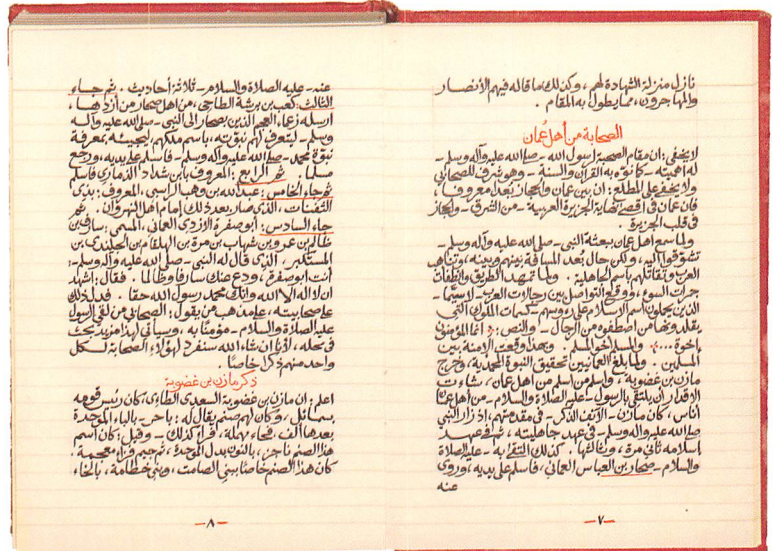 نازل منزلة الشهادة لهم، وكذلك ما قاله فيهم الأنصار
والمهاجرون، مما يطول به المقام.
الصحابة من أهل عُمان
لا يخفى: ان مقام الصحبة لرسول الله - صلى الله عليه وآله وسلم -
له اهميته - كما نوه به القرآن والسنة - وهو شرف للصحابي
ولا يخفى على المطلع: ان بين عمان والحجاز بُعدًا معروفا،
فإن عمان في اقصى نهاية الجزيرة العربية - من الشرق - والحجاز
في قلب الجزيرة.
ولما سمع اهل عمان ببعثة النبي - صلى الله عليه وآله وسلم -
تشوقوا اليه، ولكن حال بُعد المسافة بينهم وبينه، وتناهب
العرب وتقاتلهم باسم الجاهلية. ولما تمهد الطريق وانطفأت
جمرات السوء، ووقع التواصل بين رجالات العرب - لا سيما -
الذين يحملون اسم الاسلام على رؤسهم - كسمات الملوك التي
يقلدونها من اصطفوه من الرجال - والنص: ﴿ انما المؤمنون
إخوة ...﴾ والمسلم اخو المسلم. وبهذا وقعت الأمنة بين
المسلمين. ولما بلغ العمانيين تحقيق النبوة المحمدية، وخرج
مازن بن غضوبة، واسلم من اسلم من اهل عمان، شاءت
الاقدار ان يلتقي بالرسول - عليه الصلاة والسلام - من أهل عمان
أناس، كان مازن - الآنف الذكر - في مقدمتهم، اذ زار النبي
صلى الله عليه وآله وسلم - في عهد جاهليته، ثم في عهد
إسلامه ثاني مرة، وثالثها. كذلك التقى به - عليه الصلاة
والسلام - صحار بن العباس العماني، فاسلم على يديه، وروى
عنه
-٧-
عنه - عليه الصلاة والسلام - ثلاثة أحاديث. ثم جاء
الثالث: كعب بن برشة الطاحي، من اهل صحار من أزدها،
ارسله زعماء العجم الذين بصحار إلى النبي - صلى الله عليه وآله
وسلم - ليتعرف لهم نبوّته، باسم ملكهم، ليجيئه بمعرفة
نبوّة محمد - صلى الله عليه وآله وسلم - فأسلم على يديه، ورجع
مسلما. ثم الرابع: المعروف بابن شداد الذماري فاسلم
ثم جاء الخامس: عبد الله بن وهب الراسبي، المعروف: بذي
الثفنات، الذي صار بعد ذلك إمام اهل النهروان. ثم
جاء السادس: أبو صفرة الأزدي العماني، المسمى: سارف بن
ظالم بن عمرو بن شهاب بن مرة بن الهلقام بن الجلندى بن
المستكبر، الذي قال له النبي - صلى الله عليه وآله وسلم -:
أنت ابو صفرة، ودع عنك سارفا وظالما. فقال: اشهد
ان لا اله الا الله وانك محمد رسول الله حقا. فدل ذلك
على صحابيته، على مذهب من يقول: الصحابي من لقي الرسول
عليه الصلاة والسلام - مؤمنًا به، وسيأتي لهذا مزيد بحث
في محله، لأنا إن شاء الله سنفرد لهؤلاء الصحابة لكل
واحد منهم ذكرا خاصًا.
ذكر مازن بن غضوبة
اعلم: ان مازن بن غضوبة السعدي الطائي، كان رئيس قومه
بسمائل، وكان لهم صنم يقال له: باحر - بالباء الموحدة
بعدها ألف، فحاء مهملة، فراء كذلك - وقيل: كان اسم
هذا الصنم ناجر، بالنون بدل الموحدة، ثم جيم فراء معجمة.
كان هذا الصنم خاصًا ببني الصامت، وبني خطامة، بالخاء
-٨-